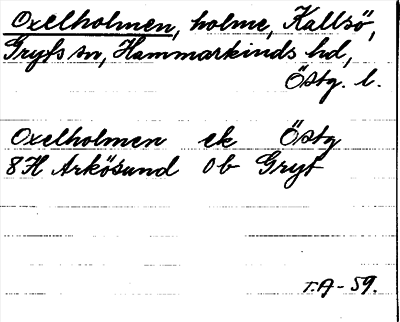 Oxelholmen, holme, Kallsö,
Gryts sn, Hammarkinds hd,
Östg. l.
Oxelholmen ek Östg
8H Arkösund Ob Gryt
T.A-59.